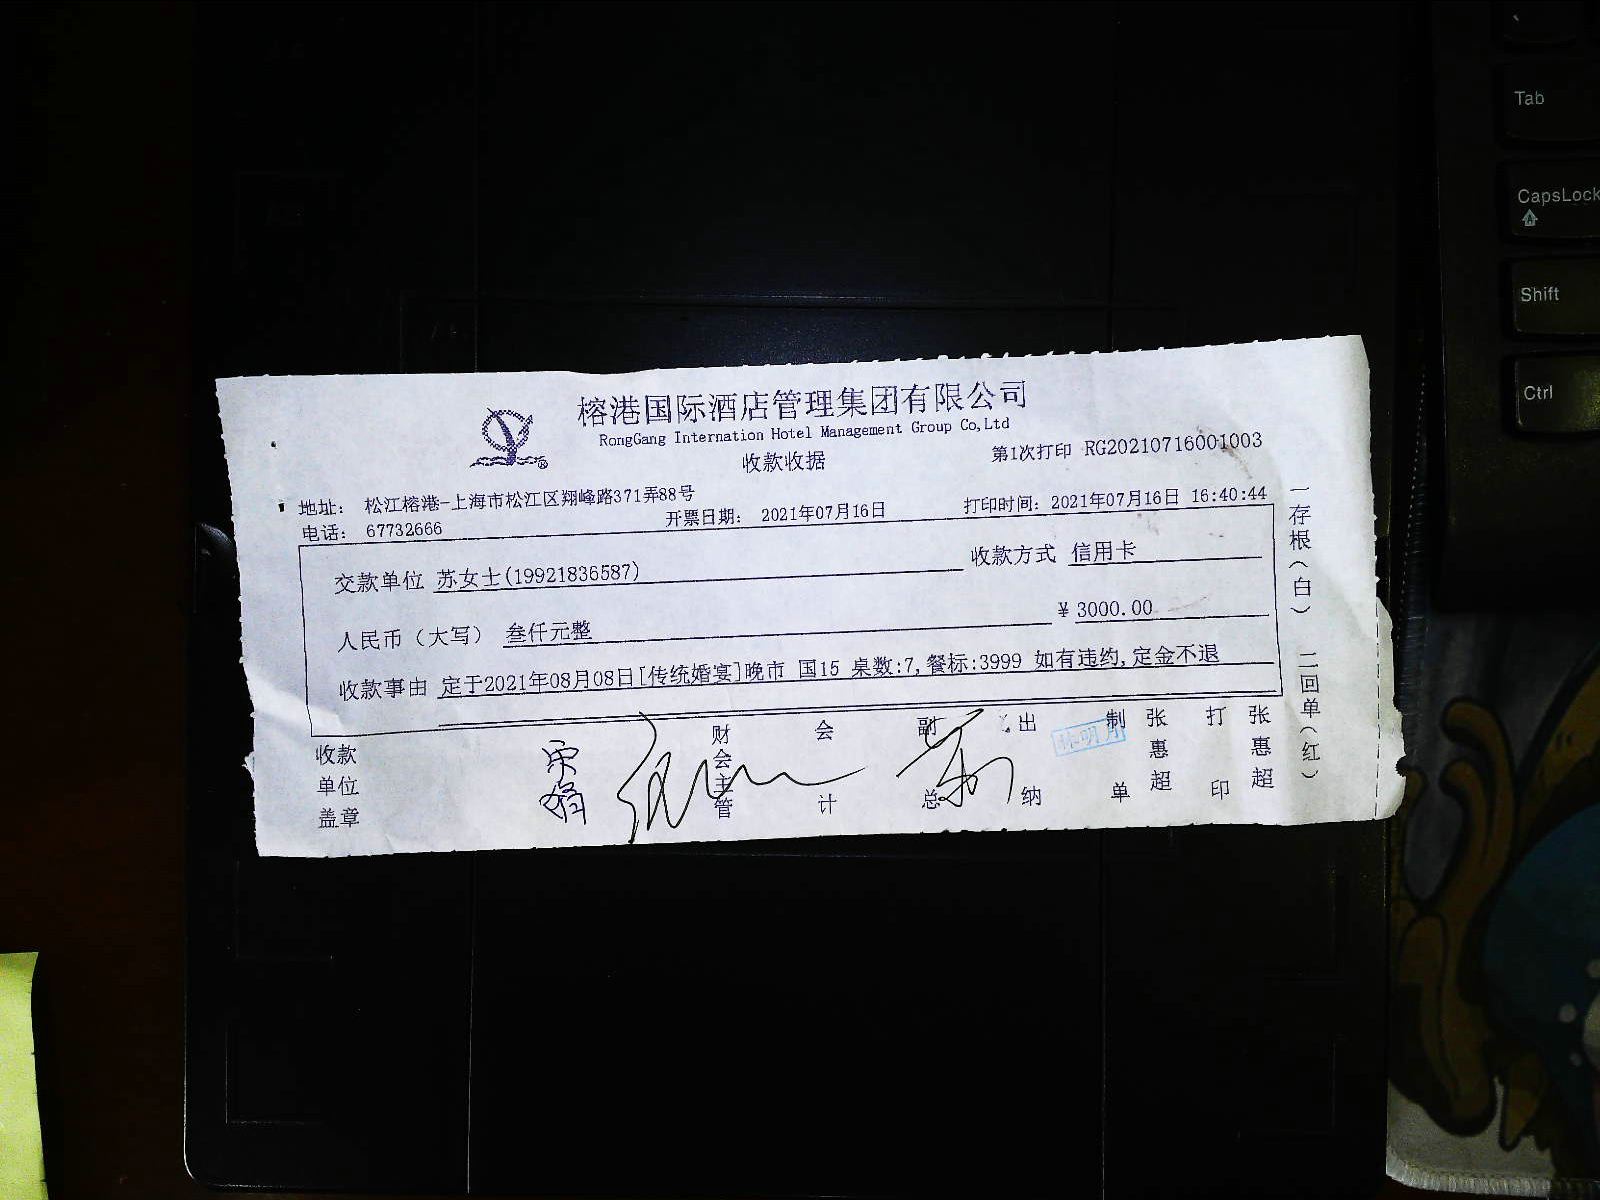 榕港国际酒店管理集团有限公司
RongGang Internation Hotel Management Group Co,Ltd
收款收据
第1次打印 RG20210716001003
地址: 松江榕港-上海市松江区翔峰路371弄88号
电话: 67732666
开票日期: 2021年07月16日
打印时间: 2021年07月16日 16:40:44
交款单位 苏女士(19921836587)
收款方式 信用卡
人民币(大写) 叁仟元整
¥ 3000.00
收款事由 定于2021年08月08日[传统婚宴]晚市 国15 桌数:7,餐标:3999 如有违约,定金不退
收款单位盖章
财会主管
会计
副总
出纳
制单
张惠超
打印
张惠超
一存根(白) 二回单(红)
Tab
CapsLock
Shift
Ctrl